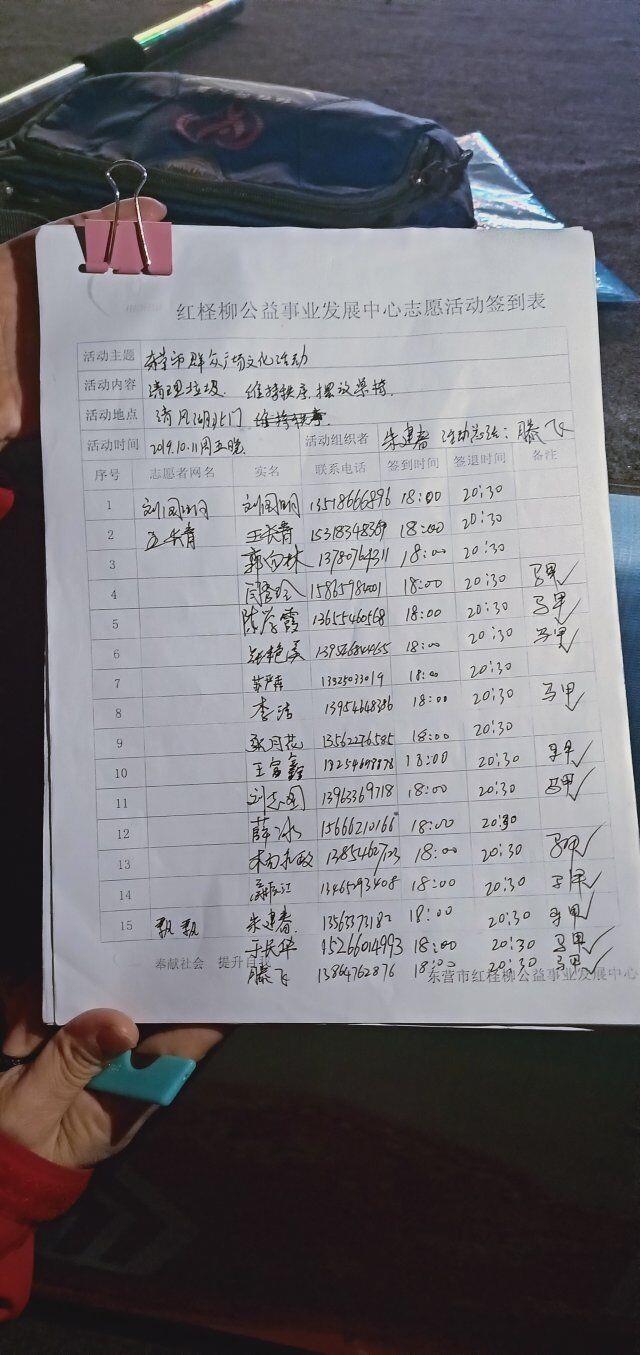 红柽柳公益事业发展中心志愿活动签到表
活动主题 东营市群众广场文化活动
活动内容 清理垃圾. 维持秩序.摆放桌椅.
活动地点 清风湖北门
活动时间 2019.10.11周五晚. 活动组织者 朱建春 活动总结:滕飞
序号 志愿者网名 实名 联系电话 签到时间 签退时间 备注
1 刘国明 刘国明 13518666896 18:00 20:30
2 王长青 王长青 15318348369 18:00 20:30
3 郭向林 13780764311 18:00 20:30
4 18:00 20:30 马甲✓
5 陈彦霞 13655460568 18:00 20:30 马甲✓
6 18:00 20:30 马甲✓
7 18:00 20:30
8 李洁 13954648386 18:00 20:30 马甲✓
9 张月花 13562276585 18:00 20:30
10 王富鑫 18:00 20:30 马甲✓
11 刘志国 13963369718 18:00 20:30 马甲✓
12 薛冰 15666210166 18:00 20:30
13 18:00 20:30 马甲✓
14 13465293408 18:00 20:30 马甲✓
15 飘飘 朱建春. 18:00 20:30 马甲✓
于长华 15266014993 18:00 20:30 马甲✓
滕飞 13864762876 18:00 20:30 马甲✓
奉献社会 提升自我 东营市红柽柳公益事业发展中心